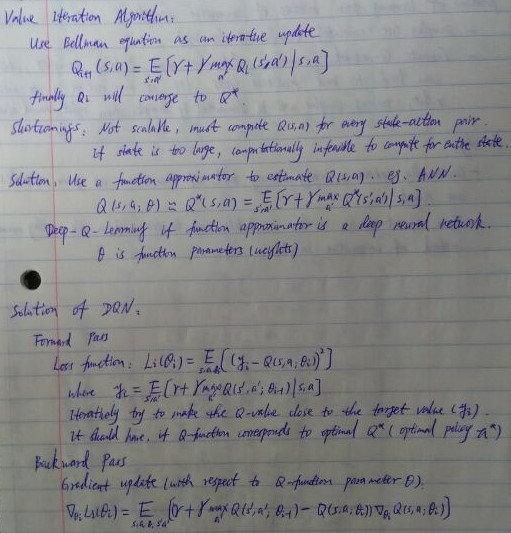 Value Iteration Algorithm:
Use Bellman equation as an iterative update
Q_{i+1}(s,a) = E_{s',a'} [r + γ max_{a'} Q_i(s',a') | s,a]
finally Q_i will converge to Q*.
Shortcomings: Not scalable, must compute Q(s,a) for every state-action pair.
if state is too large, computationally infeasible to compute for entire state.
Solution: Use a function approximator to estimate Q(s,a). eg. ANN.
Q(s,a;θ) ≈ Q*(s,a) = E_{s',a'} [r + γ max_{a'} Q*(s',a') | s,a]
Deep-Q-Learning if function approximator is a deep neural network.
θ is function parameters (weights)
Solution of DQN:
Forward Pass
Loss function: L_i(θ_i) = E_{s,a} [(y_i - Q(s,a;θ_i))²]
where y_i = E_{s'} [r + γ max_{a'} Q(s',a';θ_{i-1}) | s,a]
Iteratively try to make the Q-value close to the target value (y_i).
it should have, if Q-function corresponds to optimal Q* (optimal policy π*)
Backward Pass
Gradient update (with respect to Q-function parameter θ).
∇_{θ_i} L_i(θ_i) = E_{s,a,s'} [(r + γ max_{a'} Q(s',a';θ_{i-1}) - Q(s,a;θ_i)) ∇_{θ_i} Q(s,a;θ_i)]